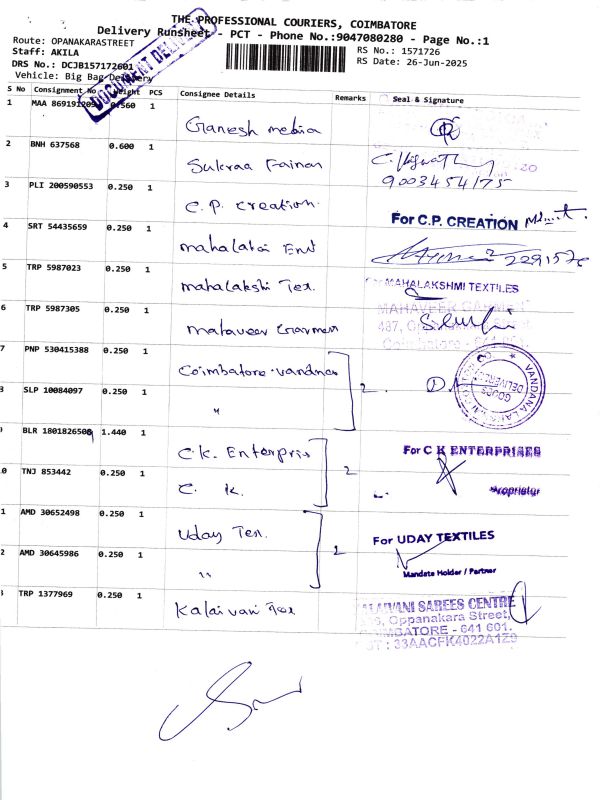 THE PROFESSIONAL COURIERS, COIMBATORE
Delivery Runsheet - PCT - Phone No.:9047080280 - Page No.:1
Route: OPANAKARASTREET
RS No.: 1571726
Staff: AKILA
RS Date: 26-Jun-2025
DRS No.: DCJB157172601
Vehicle: Big Bag Delivery
DOCUMENT DELIVERY
S No Consignment No Weight PCS Consignee Details Remarks Seal & Signature
1 MAA 869191209 0.560 1 Ganesh media
2 BNH 637568 0.600 1 Sukraa
9003454175
3 PLI 200590553 0.250 1 C.P. Creation
For C.P. CREATION
4 SRT 54435659 0.250 1 mahalaxi Ent
5 TRP 5987023 0.250 1 mahalakshi Tex.
For MAHALAKSHMI TEXTILES
6 TRP 5987305 0.250 1 mataveer Garmen
MAHAVEER GARMENT
487,
Coimbatore
7 PNP 530415388 0.250 1 Coimbatore vandnaa 2
VANDANA
GOODS DELIVERY
8 SLP 10084097 0.250 1 "
9 BLR 1801826509 1.440 1 C.K. Enterpris 2
For C K ENTERPRISES
0 TNJ 853442 0.250 1 C. K.
Proprietor
1 AMD 30652498 0.250 1 Uday Tex. 2
For UDAY TEXTILES
2 AMD 30645986 0.250 1 "
Mandate Holder / Partner
3 TRP 1377969 0.250 1 Kalaivani Tex
KALAIVANI SAREES CENTRE
Oppanakara Street,
COIMBATORE - 641 601.
GST : 33AACFK4022A1Z9